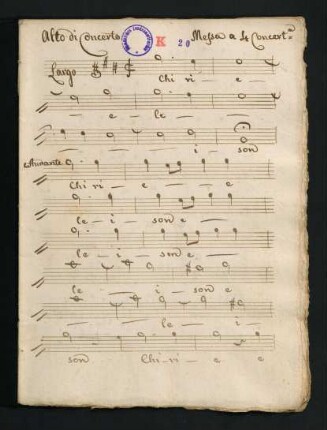 Alto di Concerto K 20 Messa a 4 Concert.ta
Largo
Chi-ri-e
e-le
i-son
Andante
Chi-ri-e e
le-i-son e e
le-i-son e e
le-i-son e e
le-i-
son Chi-ri-e e